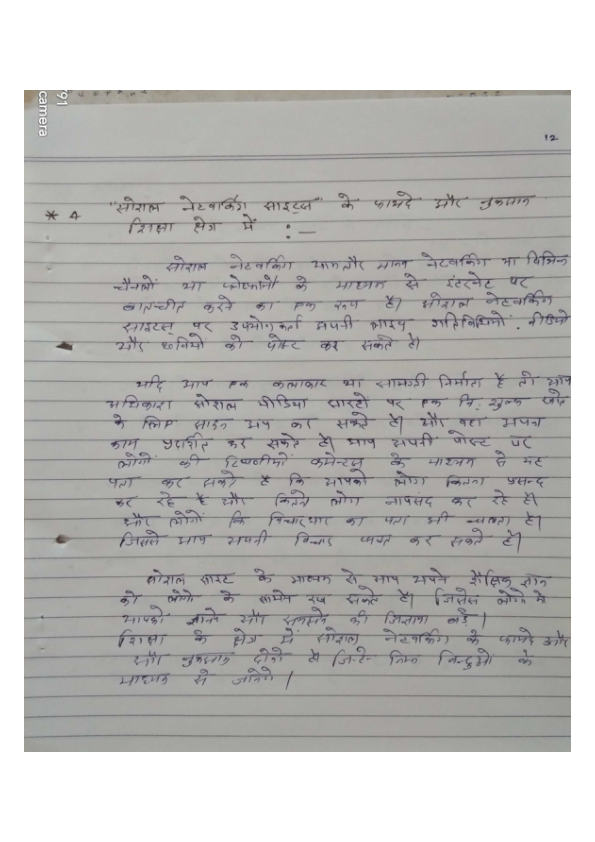 '91
camera
12
* 4 "सोशल नेटवर्किंग साइट्स" के फायदे और नुकसान
शिक्षा क्षेत्र में :—
सोशल नेटवर्किंग आमतौर मानव नेटवर्किंग या विभिन्न
चैनलों या प्लेटफार्मो के माध्यम से इंटरनेट पर
बातचीत करने का एक रूप है। सोशल नेटवर्किंग
साइटस् पर उपयोगकर्ता अपनी गतिविधियों, वीडियो
और छवियों को पोस्ट कर सकते है।
यदि आप एक कलाकार या सामग्री निर्माता है तो आप
अधिकांश सोशल मीडिया साइटो पर एक नि: शुल्क
के लिए साइन अप कर सकते है। और वहा अपना
काम प्रदर्शित कर सकते है। आप अपनी पोस्ट पर
लोगों की टिप्पणीयों कमेन्ट्स के माध्यम से यह
पता कर सकते है कि आपको लोग कितना पसन्द
कर रहे है और कितने लोग नापसंद कर रहे है।
और लोगों कि विचारधारा का पता भी चलता है।
जिससे आप अपनी विचार व्यक्त कर सकते है।
सोशल साइट के माध्यम से आप अपने शैक्षिक ज्ञान
को लोगो के सामने रख सकते है। जिससे लोगो मे
आपको जानने और समझने की जिज्ञासा बढ़े।
शिक्षा के क्षेत्र में सोशल नेटवर्किंग के फायदे और
और नुकसान दोनो है जिन्हे निम्न बिन्दुओ के
माध्यम से जानेगे।